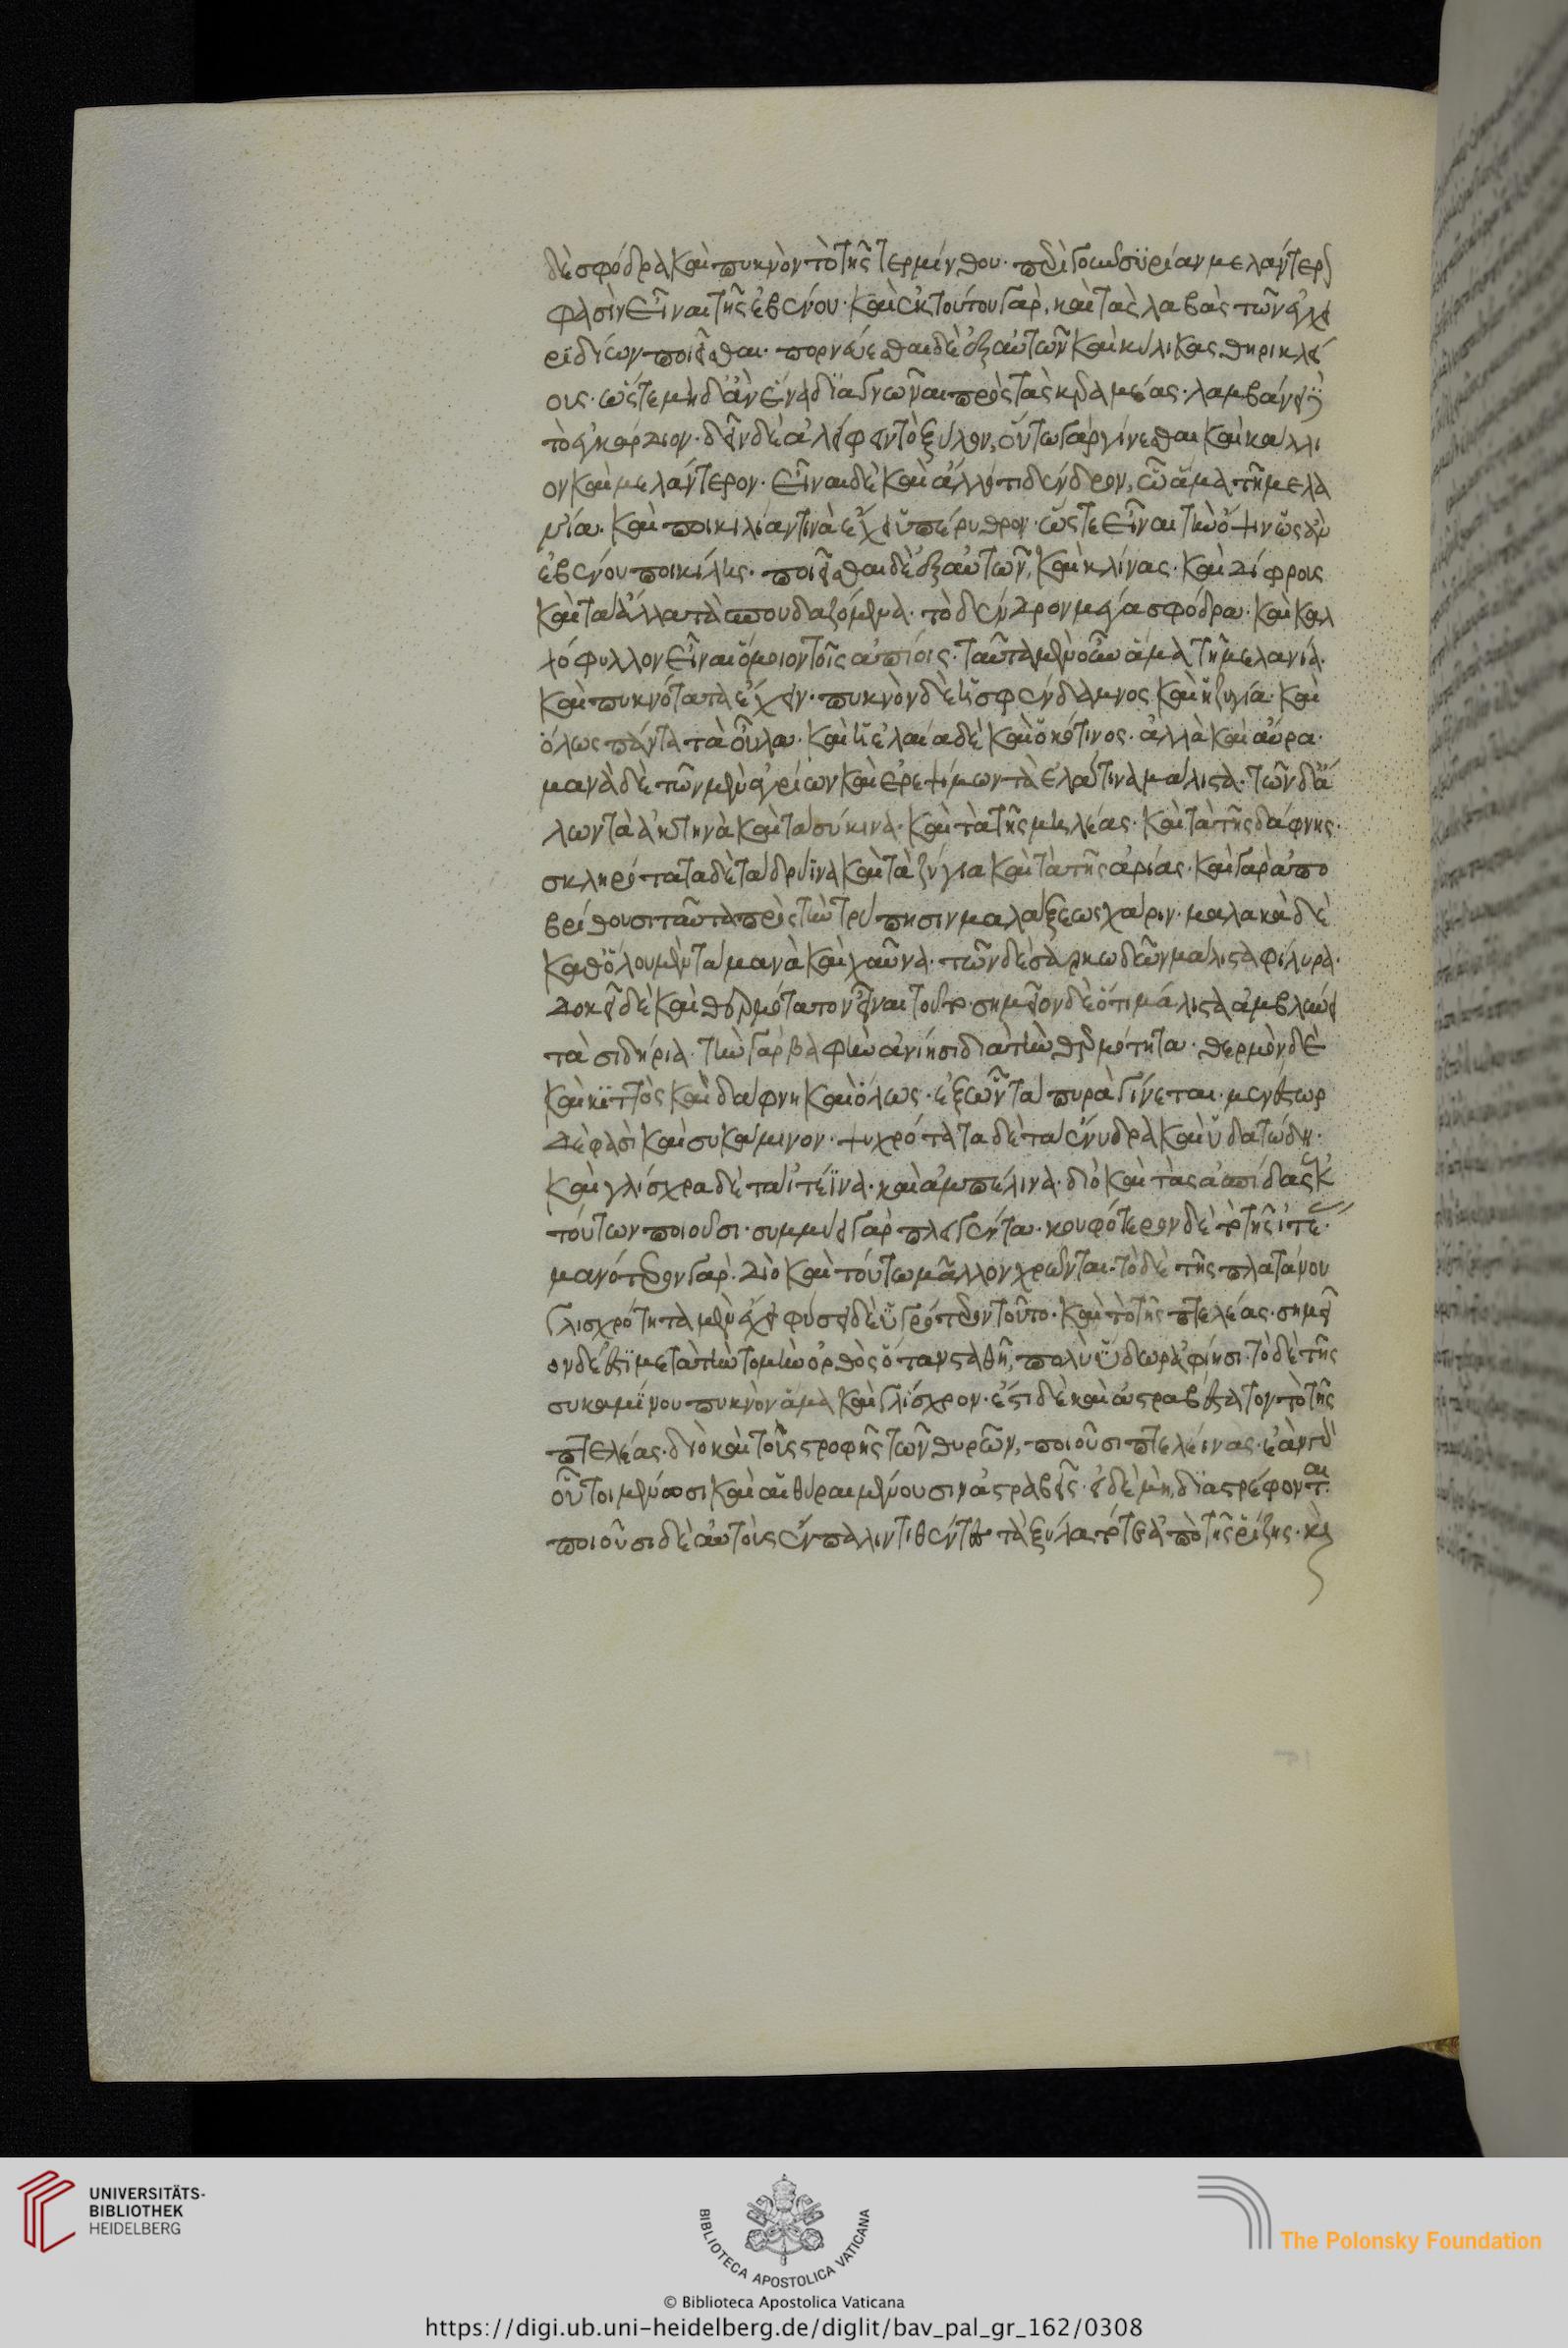 δὲ σφόδρα καὶ πυκνὸν τὸ τῆς τερμίνθου· περὶ γοῦν συρίαν μελάντερον
φασὶν εἶναι τῆς ἐβένου· καὶ ἐκ τούτου γὰρ, καὶ τὰς λαβὰς τῶν ἐγχει
ριδίων ποιεῖσθαι· τορνεύεσθαι δὲ ἐξ αὐτῶν καὶ κύλικας θηρικλεί
ους· ὥστε μηδ' ἂν ἕνα διαγνῶναι πρὸς τὰς κεραμείας· λαμβάνειν
τὸ ἐγκάρδιον· δεῖν δὲ ἀλείφειν τὸ ξύλον, οὕτω γὰρ γίνεσθαι καὶ κάλλι
ον καὶ μελάντερον· εἶναι δὲ καὶ ἄλλό τι δένδρον, ὃ ἅμα τῆ μελα
νία· καὶ ποικιλίαν τινὰ ἔχει ὑπέρυθρον· ὥστε εἶναι τὴν ὄψιν ὡσὰν
ἐβένου ποικίλης· ποιεῖσθαι δὲ ἐξ αὐτῶν, καὶ κλίνας· καὶ δίφρους
καὶ τὰ ἄλλα τὰ σπουδαζόμενα· τὸ δένδρον μέγα σφόδρα· καὶ καλ
λόφυλλον εἶναι ὅμοιον τοῖς ἀπίοις· ταῦτα μὲν οὖν ἅμα τῆ μελανία·
καὶ πυκνότατα ἔχειν· πυκνὸν δὲ ἡ σφένδαμνος καὶ ἡ ζυγία· καὶ
ὅλως πάντα τὰ οὖλα· καὶ ἡ ἐλαία δὲ καὶ ὁ κότινος· ἀλλὰ καὶ αὖρα·
μανὰ δὲ τῶν μὲν ἀγρίων καὶ ἐρεψίμων τὰ ἐλάτινα μάλιστα· τῶν δ' ἄλ
λων τὰ ἀκτηνὰ καὶ τὰ σύκινα· καὶ τὰ τῆς μηλέας· καὶ τὰ τῆς δάφνης·
σκληρότατα δὲ τὰ δρύϊνα καὶ τὰ ζύγια καὶ τὰ τῆς ἀρίας· καὶ γὰρ ἀπο
βρίθουσι ταῦτα πρὸς τὴν τρύπησιν μαλάξεως χάριν· μαλακὰ δὲ
καθόλου μὲν τὰ μανὰ καὶ χαῦνα· τῶν δὲ σαρκωδῶν μάλιστα φίλυρα·
δοκεῖ δὲ καὶ θερμότατον εἶναι τοῦτο· σημεῖον δὲ ὅτι μάλιστα ἀμβλύει
τὰ σιδήρια· τὴν γὰρ βαφὴν ἀνίησι διὰ τὴν θερμότητα· θερμὸν δὲ
καὶ κιττὸς καὶ δάφνη καὶ ὅλως· ἐξ ὧν τὰ πυρὰ γίνεται· μενέστωρ
δέ φασὶ καὶ συκάμινον· ψυχρότατα δὲ τὰ ἔνυδρα καὶ ὑδατώδη·
καὶ γλίσχρα δὲ τὰ ἰτέϊνα· καὶ ἀμπέλινα· διὸ καὶ τὰς ἀσπίδας ἐκ
τούτων ποιοῦσι· συμμύει γὰρ πληγέντα· κουφότερον δὲ τὸ τῆς ἰτέας·
μανότερον γὰρ· διὸ καὶ τούτω μᾶλλον χρῶνται· τὸ δὲ τῆς πλατάνου
γλισχρότητα μὲν ἔχει φύσει δὲ ὑγρότερον τοῦτο· καὶ τὸ τῆς πτελέας· σημεῖ
ον δέ ἐστι μετὰ τὴν τομὴν ὀρθὸς ὅταν σταθῆ, πολὺ ὕδωρ ἀφίησι· τὸ δὲ τῆς
συκαμίνου πυκνὸν ἅμα καὶ γλίσχρον· ἔστι δὲ καὶ ἀστραβέστατον τὸ τῆς
πτελέας· διὸ καὶ τοὺς στροφῆς τῶν θυρῶν, ποιοῦσι πτελεΐνας· ἐὰν γὰρ
οὗτοι μένωσι καὶ αἱ θύραι μένουσιν ἀστραβεῖς· εἰ δὲ μὴ, διαστρέφονται
ποιοῦσι δὲ αὐτοὺς ἔμπαλιν τιθέντες τὰ ξύλα τό τε ἀπὸ τῆς ῥίζης· καὶ
UNIVERSITÄTS-
BIBLIOTHEK
HEIDELBERG
BIBLIOTECA APOSTOLICA VATICANA
The Polonsky Foundation
© Biblioteca Apostolica Vaticana
https://digi.ub.uni-heidelberg.de/diglit/bav_pal_gr_162/0308